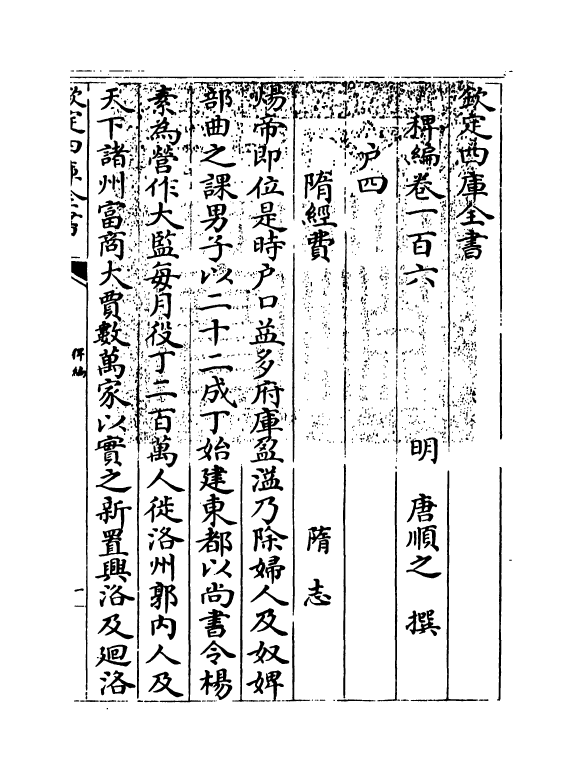 欽定四庫全書
稗編卷一百六
明 唐順之 撰
户四
隋經費 隋志
煬帝即位是時户口益多府庫盈溢乃除婦人及奴婢
部曲之課男子以二十二成丁始建東都以尚書令楊
素為營作大監每月役丁二百萬人徙洛州郭内人及
天下諸州富商大賈數萬家以實之新置興洛及廻洛
欽定四庫全書
稗編
一